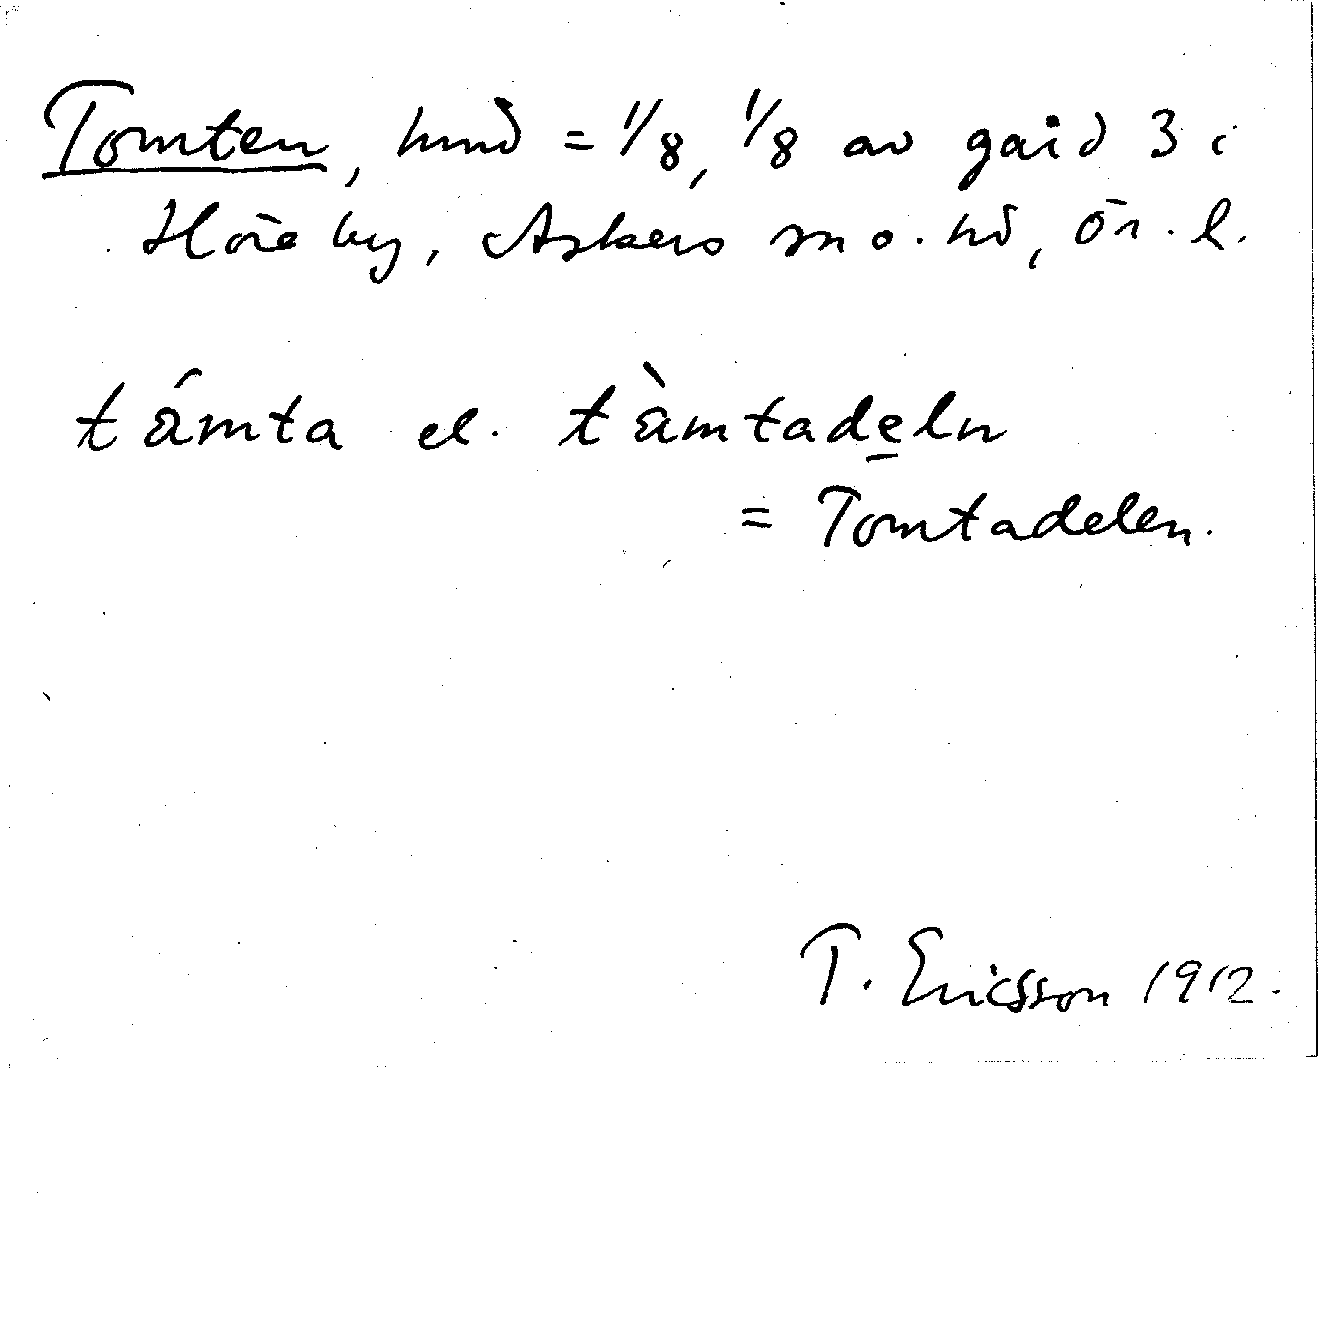 Tomten, hmd = 1/8, 1/8 av gård 3 i
by, Askers sn o. hd, Ör. l.
támta el. tàmtadeln
= Tomtadelen.
T. Ericsson 1912.